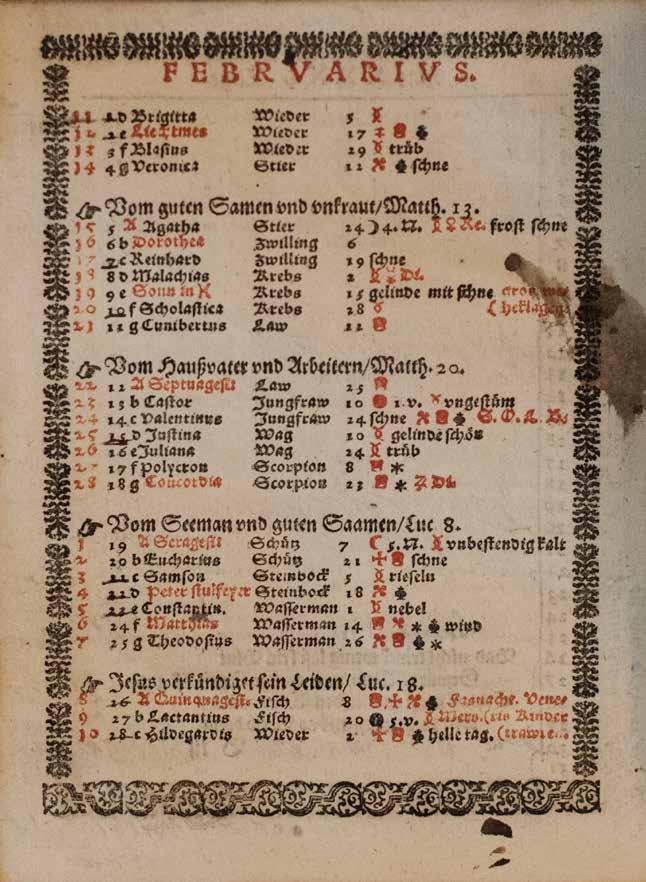 FEBRVARIVS.
11 1 d Brigitta Wieder 5
12 2 e Liechtmes Wieder 17
13 3 f Blasius Wieder 29 trüb
14 4 g Veronica Stier 12 schne
Vom guten Samen vnd vnkraut/Matth. 13.
15 5 A Agatha Stier 24 4. N. Re. frost schne
16 6 b Dorothea Zwilling 6
17 7 c Reinhard Zwilling 19 schne
18 8 d Malachias Krebs 2 Di.
19 9 e Sonn in ♓ Krebs 15 gelinde mit schne
20 10 f Scholastica Krebs 28
21 11 g Cunibertus Law 11
Vom Haußvater vnd Arbeitern/Matth. 20.
22 12 A Septuagesi: Law 25
23 13 b Castor Jungfraw 10 1. v. vngestüm
24 14 c Valentinus Jungfraw 24 schne S. O. L. B.
25 15 d Justina Wag 10 gelinde schön
26 16 e Juliana Wag 24 trüb
27 17 f Polycron Scorpion 8 *
28 18 g Concordia Scorpion 23 * Di.
Vom Seeman vnd guten Saamen/Luc 8.
1 19 A Sexagesi: Schütz 7 5. N. vnbestendig kalt
2 20 b Eucharius Schütz 21 schne
3 21 c Samson Steinbock 5 rieseln
4 22 d Peter stulfeyer Steinbock 18
5 23 e Constantin. Wasserman 1 nebel
6 24 f Matthias Wasserman 14 * wind
7 25 g Theodosius Wasserman 26 *
Jesus verkündiget sein Leiden/ Luc. 18.
8 26 A Quinquagesi: Fisch 8 Fasnacht. Vene-
9 27 b Lactantius Fisch 20 5. v. Merc. (ris Kinder
10 28 c Hildegardis Wieder 2 helle tag.